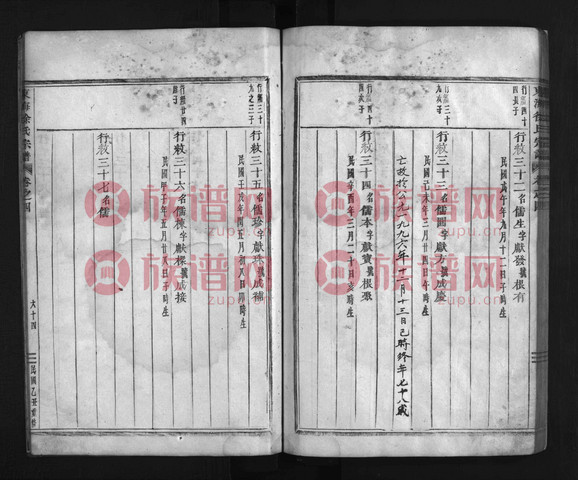 行敕三十二名儒生字獻發號根有
民國戊午年九月十二日子時生
行敕三十三名儒圃字獻方號成慶
民國己未年三月廿四日午時生
亡故於公元一九九六年十二月十三日巳時終年七十八歲
行敕三十四名儒本字獻寶號根源
民國辛酉年三月二十日亥時生
行敕三十五名儒珍字獻珠號成補
行敕三十六名儒棟字獻樑號成接
民國甲子年五月廿八日子時生
行敕三十七名儒
東海徐氏宗譜
卷之四
六十四
民國乙丑重修
族谱网
zupu.cn